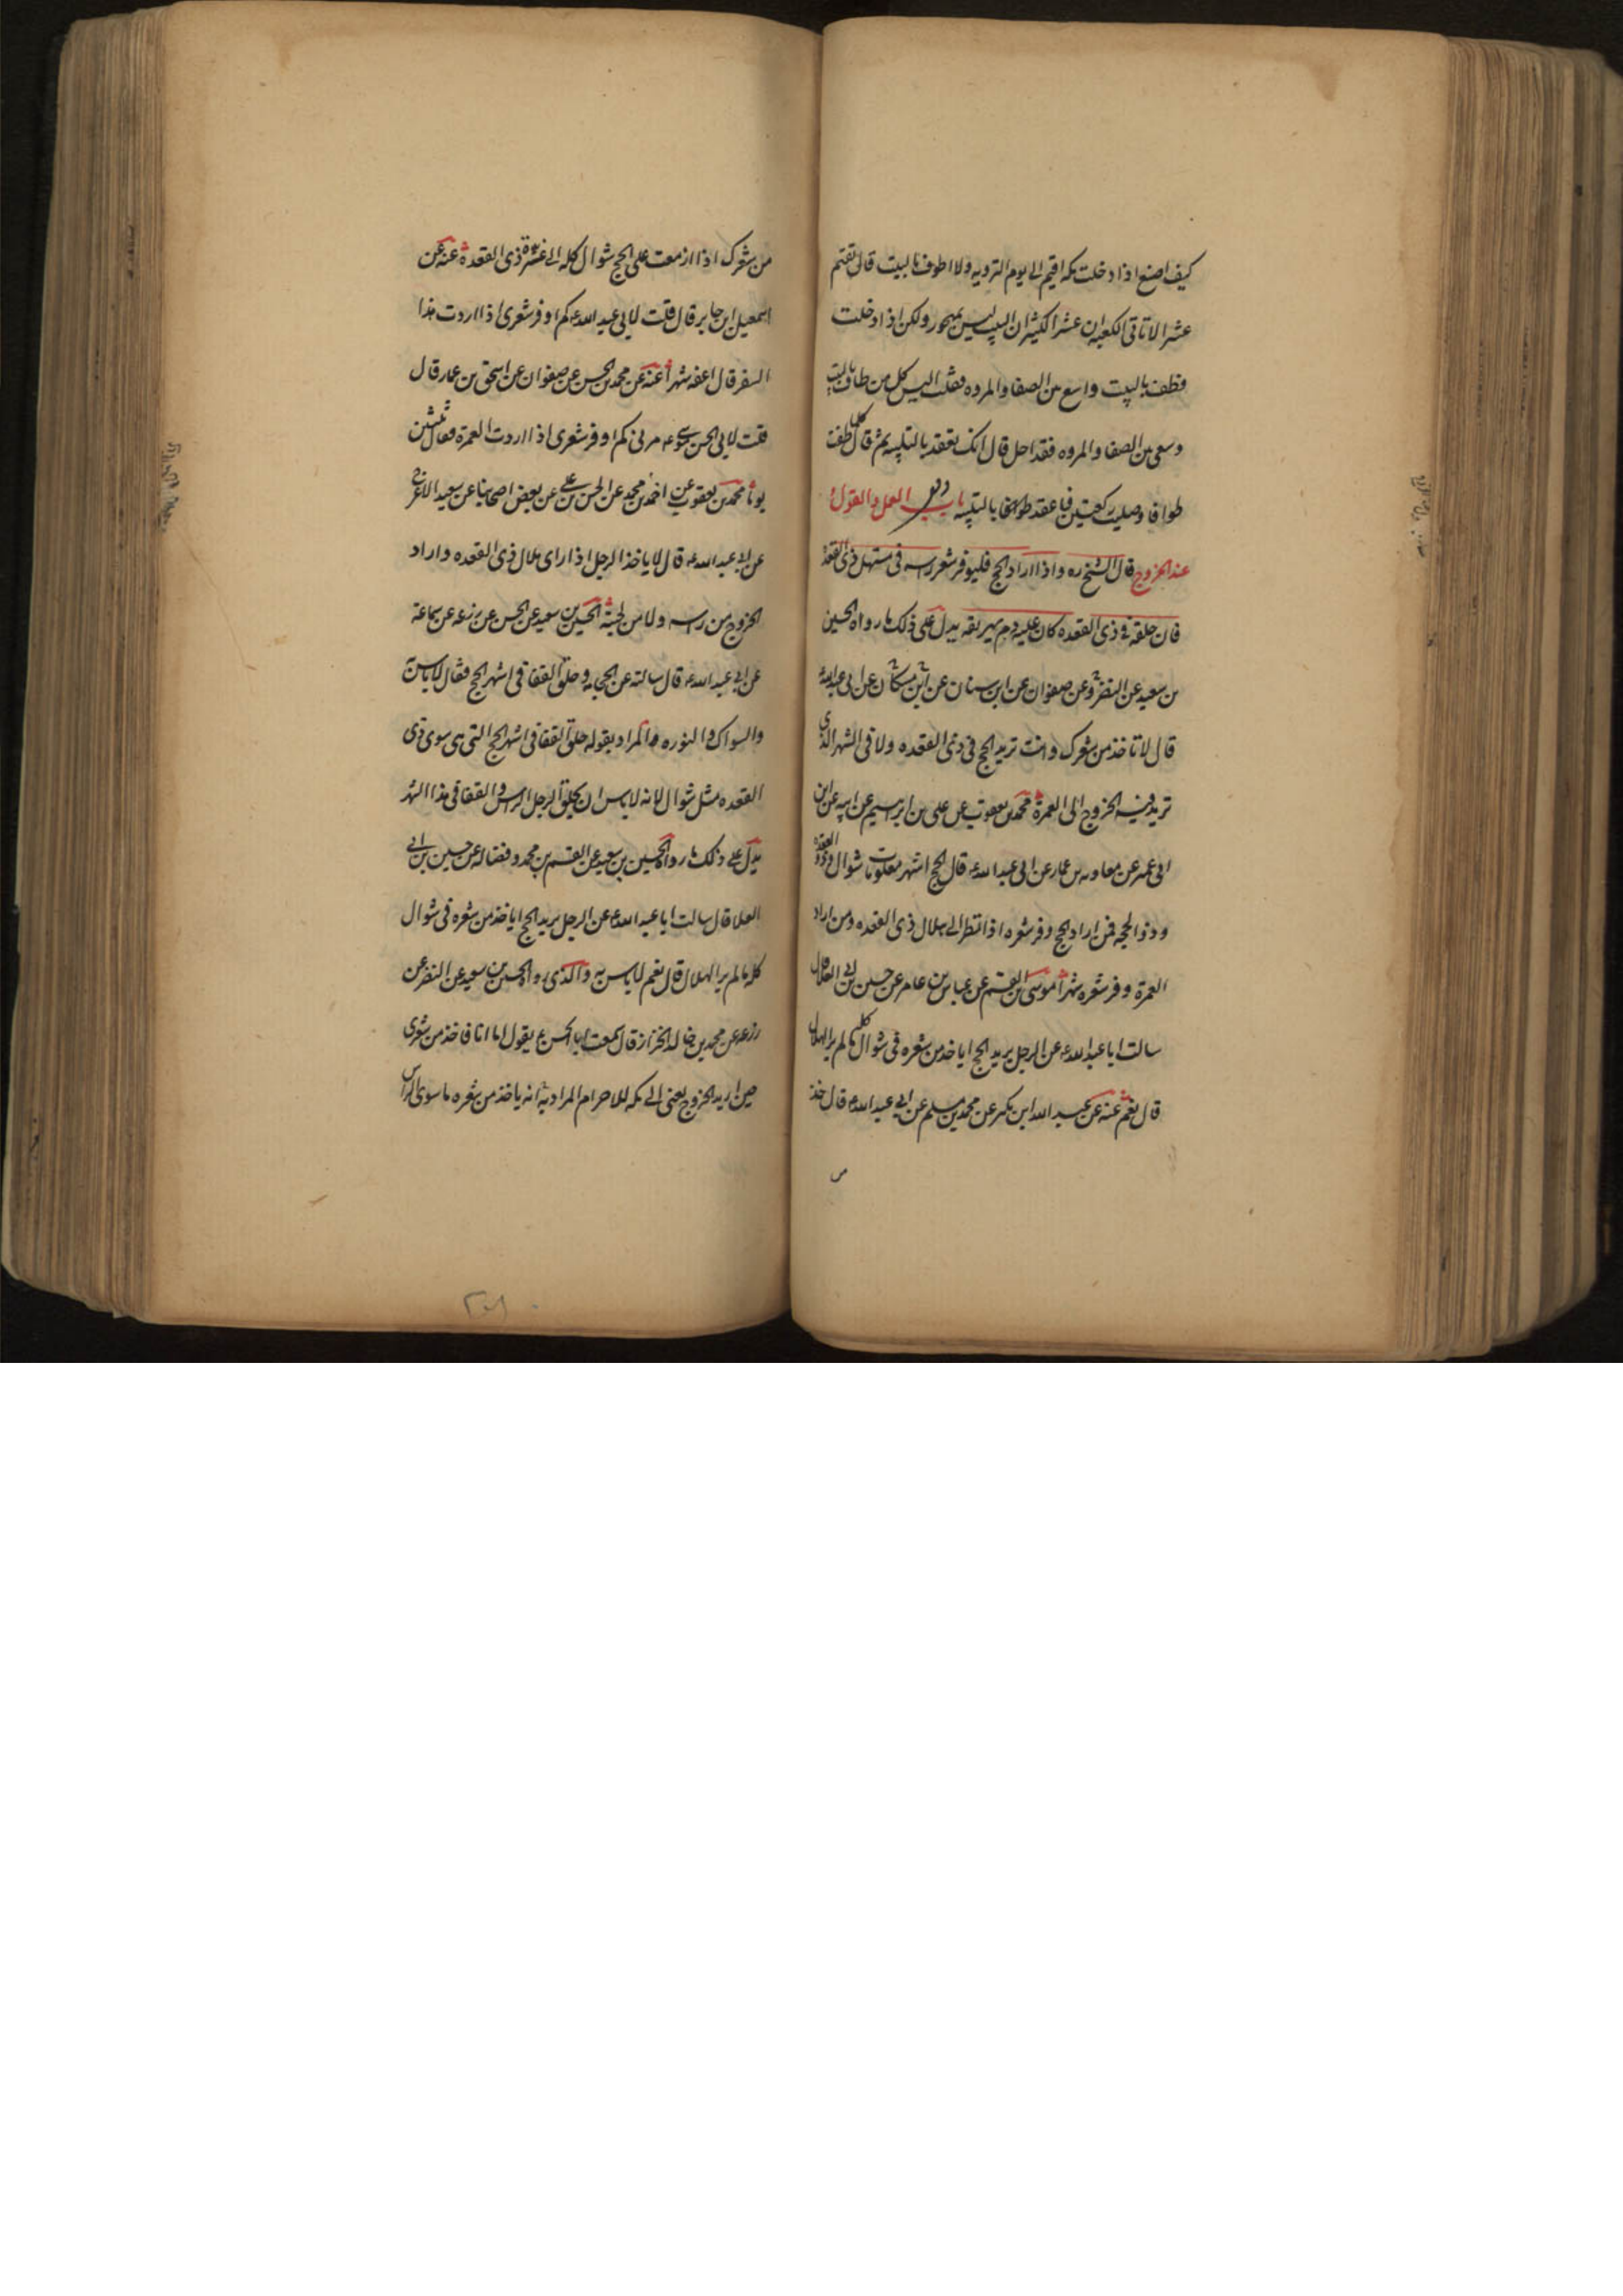 كيف اصنع اذا دخلت مكه اقيم الى يوم الترويه ولا اطوف بالبيت قال تقيم
عشرا لا تاتى الكعبه ان عشرا لكثير ان البيت ليس بمهجور ولكن اذا دخلت
فطف بالبيت واسع بين الصفا والمروه فقلت اليس كل من طاف بالبيت
وسعى بين الصفا والمروه فقد احل قال انك تعقد بالتلبيه ثم قال كلما طفت
طوافا وصليت ركعتين فاعقد طوافا بالتلبيه باب العمل والقول
عند الخروج قال الشيخ ره واذا اراد الحج فليوفر شعر راسه فى مستهل ذى القعده
فان حلقه فى ذى القعده كان عليه دم يهريقه يدل على ذلك ما رواه الحسين
بن سعيد عن النضر وعن صفوان عن ابن سنان عن ابن مسكان عن ابى عبد الله
قال لا تاخذ من شعرك وانت تريد الحج فى ذى القعده ولا فى الشهر الذى
تريد فيه الخروج الى العمرة محمد بن يعقوب عن على بن ابرهيم عن ابيه عن ابن
ابى عمير عن معاويه بن عمار عن ابى عبد الله ع قال الحج اشهر معلومات شوال وذو القعده
وذو الحجه فمن اراد الحج وفر شعره اذا نظر الى هلال ذى القعده ومن اراد
العمرة وفر شعره شهرا موسى بن القسم عن عباس بن عامر عن حسين بن ابى العلا قال
سالت ابا عبد الله ع عن الرجل يريد الحج اياخذ من شعره فى شوال كله ما لم ير الهلال
قال نعم عنه عن عبد الله ابن بكير عن محمد بن مسلم عن ابى عبد الله ع قال خذ
من
من شعرك اذا ازمعت على الحج شوال كله الى غرة ذى القعدة عنه عن
اسمعيل ابن جابر قال قلت لابى عبد الله ع كم اوفر شعرى اذا اردت هذا
السفر قال اعفه شهرا عنه عن محمد بن الحسن عن صفوان عن اسحق بن عمار قال
قلت لابى الحسن موسى ع مرنى كم اوفر شعرى اذا اردت العمرة فقال ثلثين
يوما محمد بن يعقوب عن احمد بن محمد عن الحسن بن على عن بعض اصحابنا عن سعيد الاعرج
عن ابى عبد الله ع قال لا ياخذ الرجل اذا راى هلال ذى القعده واراد
الخروج من راسه ولا من لحيته الحسين بن سعيد عن الحسن عن زرعه عن سماعة
عن ابى عبد الله ع قال سالته عن الحجامه وحلق القفا فى اشهر الحج فقال لا باس به
والسواك والنوره فالمراد بقوله حلق القفا فى اشهر الحج التى هى سوى ذى
القعده مثل شوال لانه لا باس ان يحلق الرجل الراس والقفا فى هذا الشهر
يدل على ذلك ما رواه الحسين بن سعيد عن القسم بن محمد وفضاله عن حسين بن ابى
العلا قال سالت ابا عبد الله ع عن الرجل يريد الحج اياخذ من شعره فى شوال
كله ما لم ير الهلال قال نعم لا باس به والذى رواه الحسين بن سعيد عن النضر عن
زرعه عن محمد بن خالد الخزاز قال سمعت ابا الحسن ع يقول اما انا فاخذ من شعرى
حين اريد الخروج يعنى الى مكه للاحرام المراد به انه ياخذ من شعره ما سوى الراس